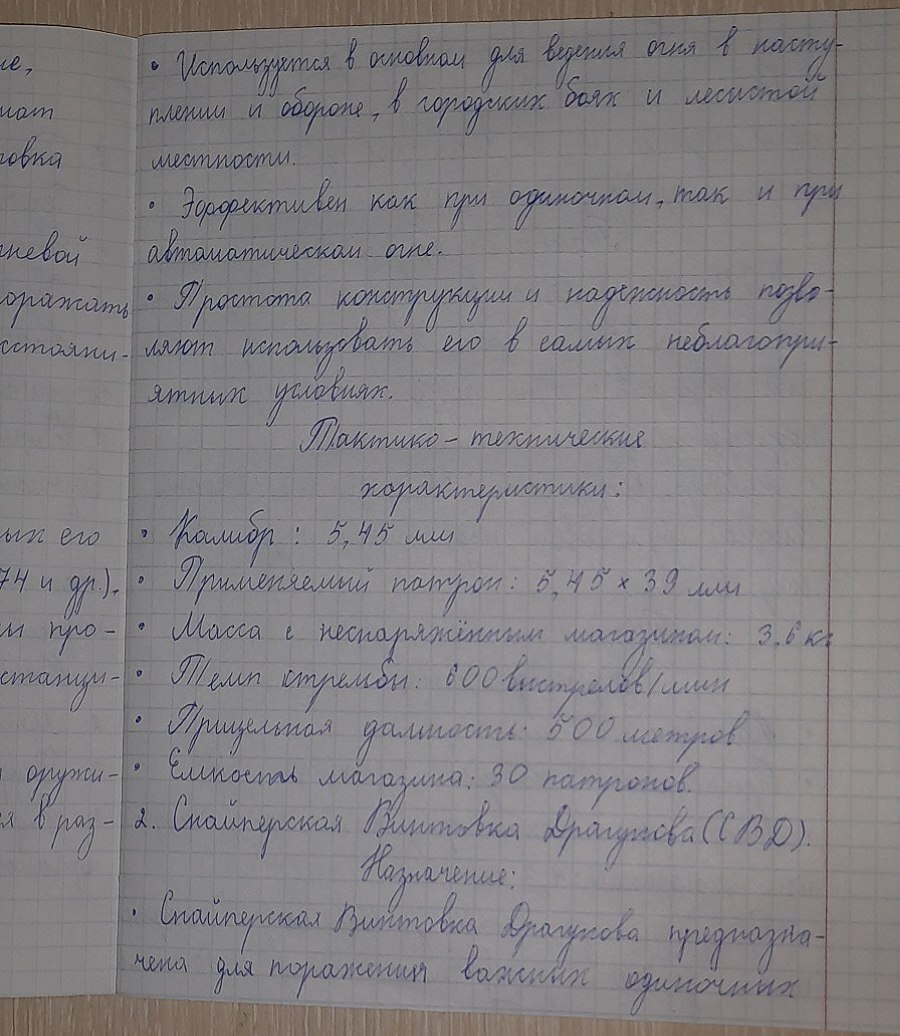 ие,
мат
товка
невой
оражать
сстояни-
ых его
74 и др.).
ы про-
станци-
оружи-
ся в раз-
• Используется в основном для ведения огня в насту-
плении и обороне, в городских боях и лесистой
местности.
• Эффективен как при одиночном, так и при
автоматическом огне.
• Простота конструкции и надежность позво-
ляют использовать его в самых неблагопри-
ятных условиях.
Тактико - технические
характеристики:
• Калибр: 5,45 мм
• Применяемый патрон: 5,45 × 39 мм
• Масса с неснаряжённым магазином: 3.6 кг
• Темп стрельбы: 600 выстрелов/мин
• Прицельная дальность: 500 метров
• Емкость магазина: 30 патронов.
2. Снайперская Винтовка Драгунова (СВД).
Назначение:
• Снайперская Винтовка Драгунова предназна-
чена для поражения важных одиночных